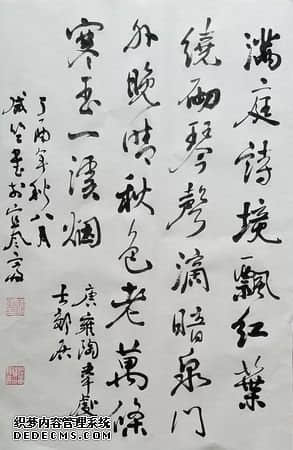 滿庭詩境飄紅葉
繞砌琴聲滴暗泉門
外晚晴秋色老萬條
寒玉一溪烟
唐雍陶韋處
士郊居
丁酉年秋八月
書於
织梦内容管理系统
DEDECMS.COM